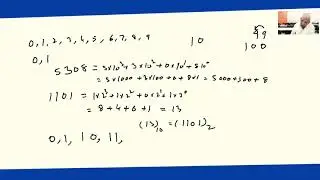 0, 1, 2, 3, 4, 5, 6, 7, 8, 9 10 99
0, 1 100
5308 = 5×10³+3×10²+0×10¹+8×10⁰
= 5×1000+3×100+0+8×1 = 5000+300+8
1101 = 1×2³+1×2²+0×2¹+1×2⁰
= 8+4+0+1 = 13
(13)₁₀ = (1101)₂
0, 1, 10, 11,